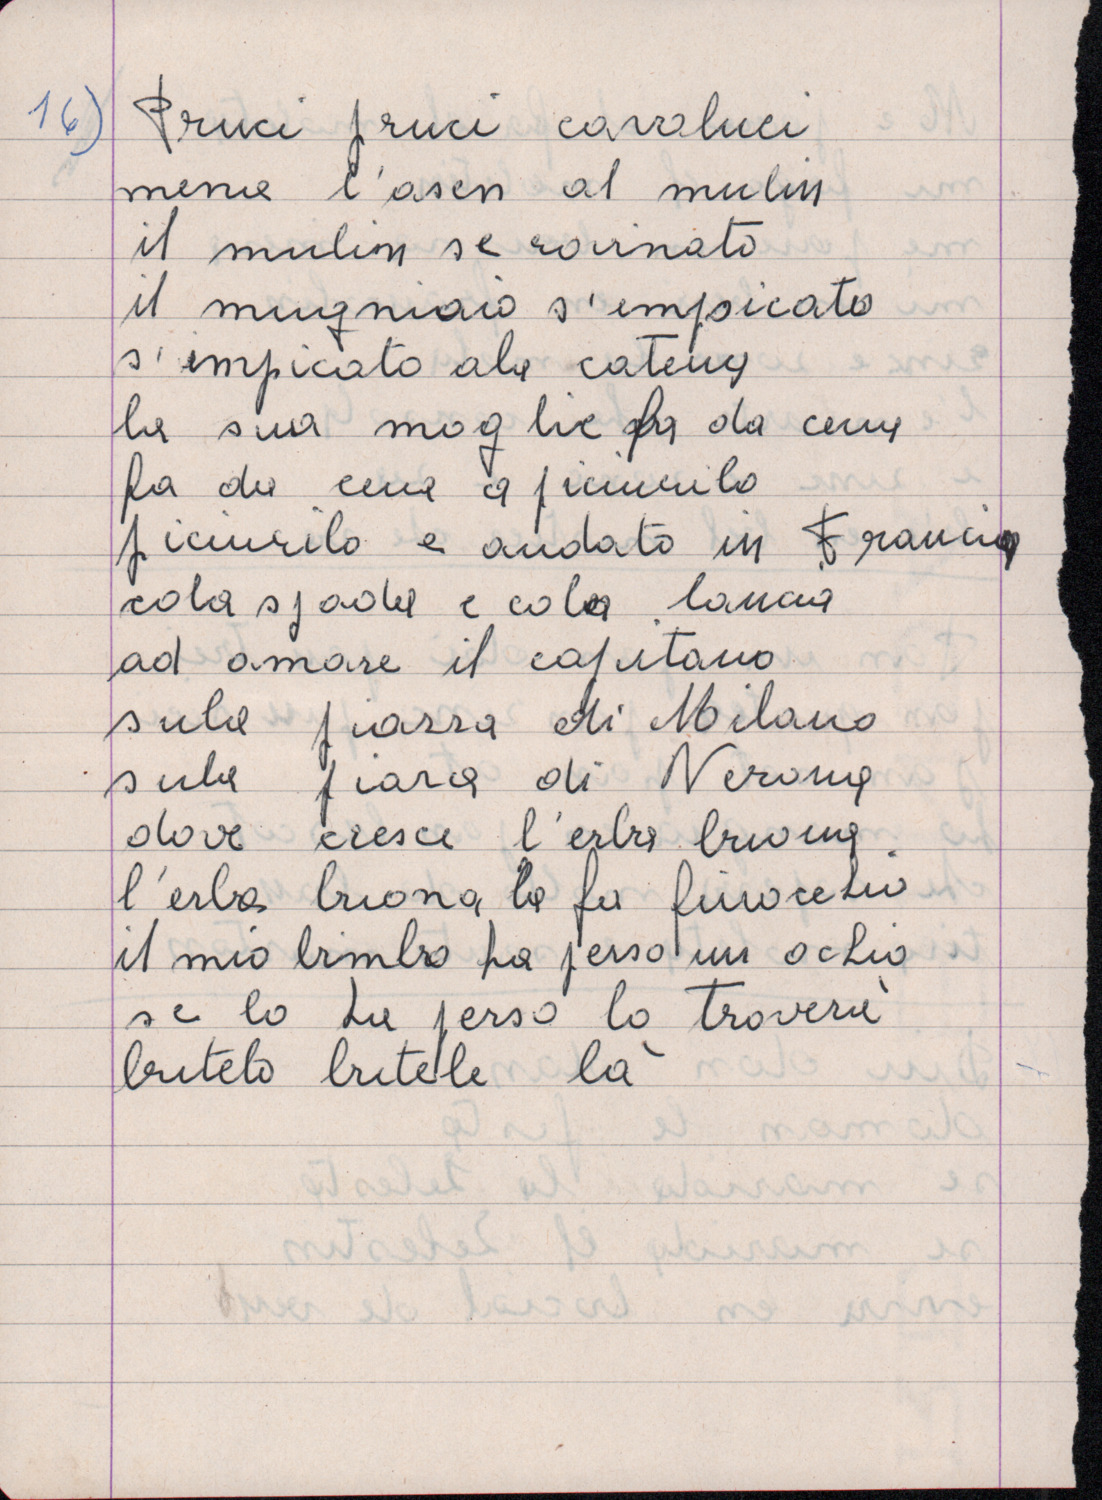 16) Pruci pruci cavaluci
mena l'asen al mulin
il mulin se rovinato
il mugniaio s'empicato
s'empicato ala catena
la sua moglie fa da cena
fa da cena a piciurilo
piciurilo e andato in Francia
cola spada e cola lancia
ad amare il capitano
sula piazza di Milano
sula piaza di Verona
dove cresce l'erba buona
l'erba buona la fa finocchio
il mio bimbo ha perso un ochio
se lo ha perso lo troverà
butelo butele là